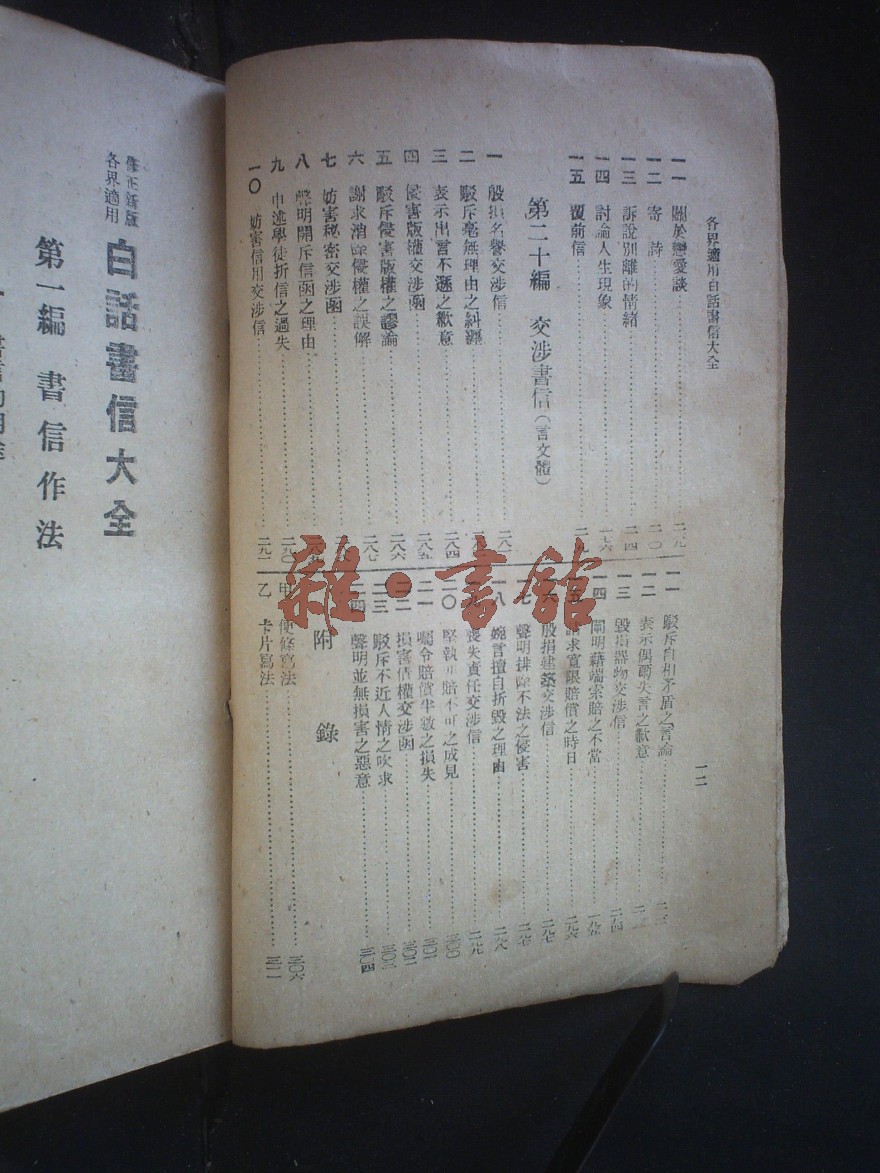 各界適用白話書信大全
一一 關於戀愛談
一二 寄詩
一三 訴說別離的情緒 二一四
一四 討論人生現象
一五 覆前信
第二十編 交涉書信（言文體）
一 毀損名譽交涉信 二八一
二 駁斥毫無理由之糾纏
三 表示出言不遜之歉意 二八四
四 侵害版權交涉函 二八五
五 駁斥侵害版權之謬論 二八六
六 謝求消除侵權之誤解 二八七
七 妨害秘密交涉函
八 聲明開斥信函之理由
九 申述學徒折信之過失 二九〇
一〇 妨害信用交涉信 二九一
一一 駁斥自相矛盾之言論
一二 表示偶爾失言之歉意
一三 毀損器物交涉信 二九四
一四 闡明藉端索賠之不當 二九五
請求寬限賠償之時日 二九六
毀損建築交涉信 二九七
七 聲明排除不法之侵害 二九七
一八 婉言擅自折毀之理由 二九八
喪失責任交涉信 二九九
二〇 堅執非賠不可之成見 三〇〇
二一 囑令賠償半數之損失 三〇一
二二 損害債權交涉函 三〇二
二三 駁斥不近人情之吹求 三〇三
二四 聲明並無損害之惡意 三〇四
附錄
甲 便條寫法 三〇六
乙 卡片寫法 三一一
一二
修正新版
各界適用
白話書信大全
第一編 書信作法
雜·書館